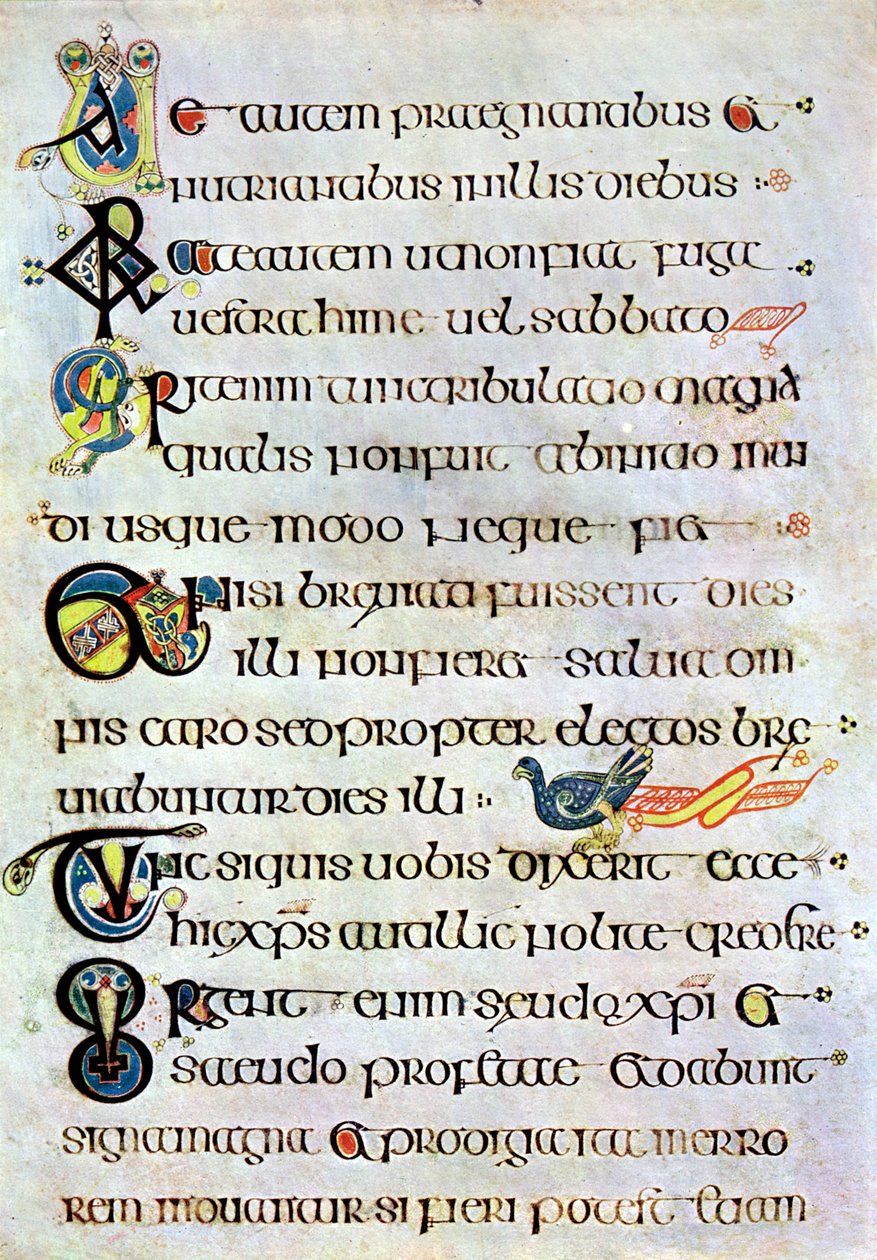 Uae autem praegnantibus et
nutrientibus in illis diebus
Orate autem ut non fiat fuga
uestra hime uel sabbato
Erit enim tunc tribulatio magna
qualis non fuit ab initio mun
di usque modo neque fiet
Et nisi breuiati fuissent dies
illi non fieret salua om
nis caro sed propter electos bre
uiabuntur dies illi
Tunc si quis uobis dixerit ecce
hic xps aut illic nolite credere
Surgent enim seudo xpi et
saeudo profetae et dabunt
signa magna et prodigia ita in erro
rem si fieri potest etiam